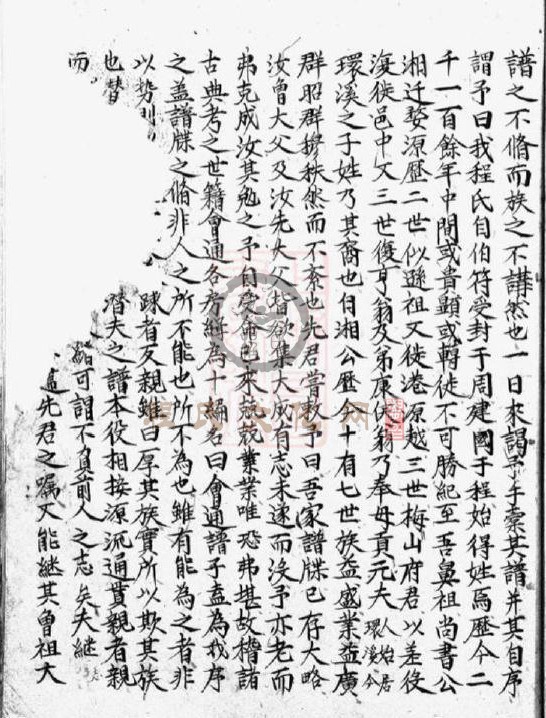 譜之不脩而族之不講然也一日來謁予手橐其譜并其自序
謂予曰我程氏自伯符受封于周建國于程始得姓焉歷今二
千一百餘年中間或貴顯或轉徙不可勝紀至吾鼻祖尚書公
湘迁婺源歷二世似遜祖又徙港原越三世梅山府君以差役
復徙邑中又三世復亨翁及弟康侯翁乃奉母貢元夫人始居環溪今
環溪之子姓乃其裔也自湘公歷今十有七世族益盛業益廣
群昭群穆秩然而不紊也先君嘗教予曰吾家譜牒已存大略
汝曾大父及汝先大父皆欲集大成有志未逮而没予亦老而
弗克成汝其勉之予自受命已來兢兢業業唯恐弗堪故稽諸
古典考之世籍會通各房継為十編名曰會通譜子盍為我序
之盖譜牒之脩非人之所不能也所不為也雖有能為之者非
以势利 踈者反親雖曰厚其族實所以欺其族
也昔 潜夫之譜本役相接源流通貫親者親
而 可謂不負前人之志矣夫継
先君之嘱又能継其曾祖大